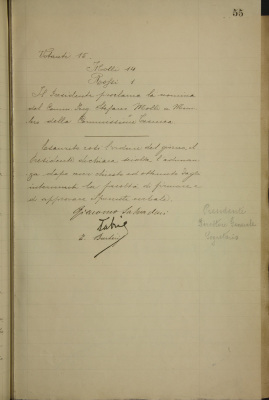 55
Votanti 15.
Molli 14
Rossi 1
Il Presidente proclama la nomina
del Comm Ing Stefano Molli a Mem-
bro della Commissione Tecnica
Esaurito così l'ordine del giorno il
Presidente dichiara sciolta l'adunan-
za dopo aver chiesto ed ottenuto dagli
intervenuti la facoltà di firmare e
di approvare il presente verbale.
Giacomo Salvadori
Presidente
Direttore Generale
Segretario